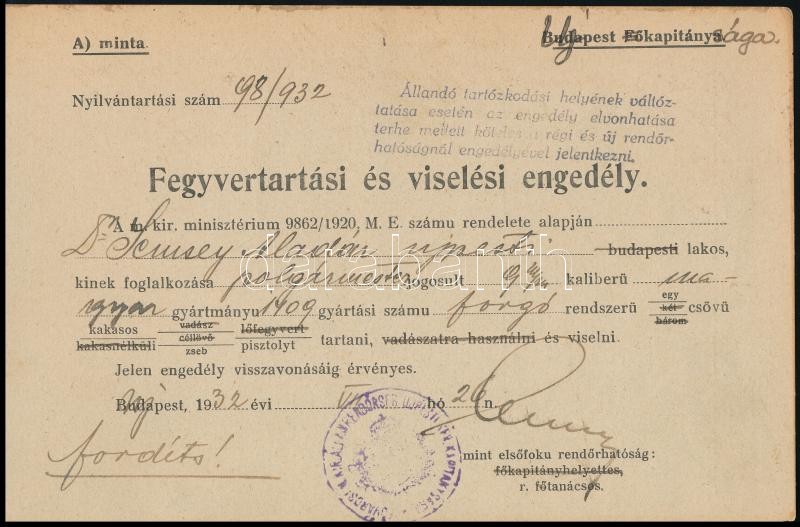 A) minta.
Uj Budapest Főkapitánysága.
Nyilvántartási szám 98/932
Állandó tartózkodási helyének változ-
tatása esetén az engedély elvonhatása
terhe mellett köteles a régi és új rendőr-
hatóságnál engedélyével jelentkezni.
Fegyvertartási és viselési engedély.
A m. kir. minisztérium 9862/1920. M. E. számu rendelete alapján
Dr Semsey Aladár ujpesti budapesti lakos,
kinek foglalkozása polgármester jogosult 9 m/m kaliberü ma-
gyar gyártmányu 1409 gyártási számu forgó rendszerü egy két három csövü
kakasos kakasnélküli vadász céllövő zseb lőfegyvert pisztolyt tartani, vadászatra használni és viselni.
Jelen engedély visszavonásáig érvényes.
Uj Budapest, 1932 évi hó 26 n.
fordíts!
mint elsőfoku rendőrhatóság:
főkapitányhelyettes,
r. főtanácsos.
darabanth